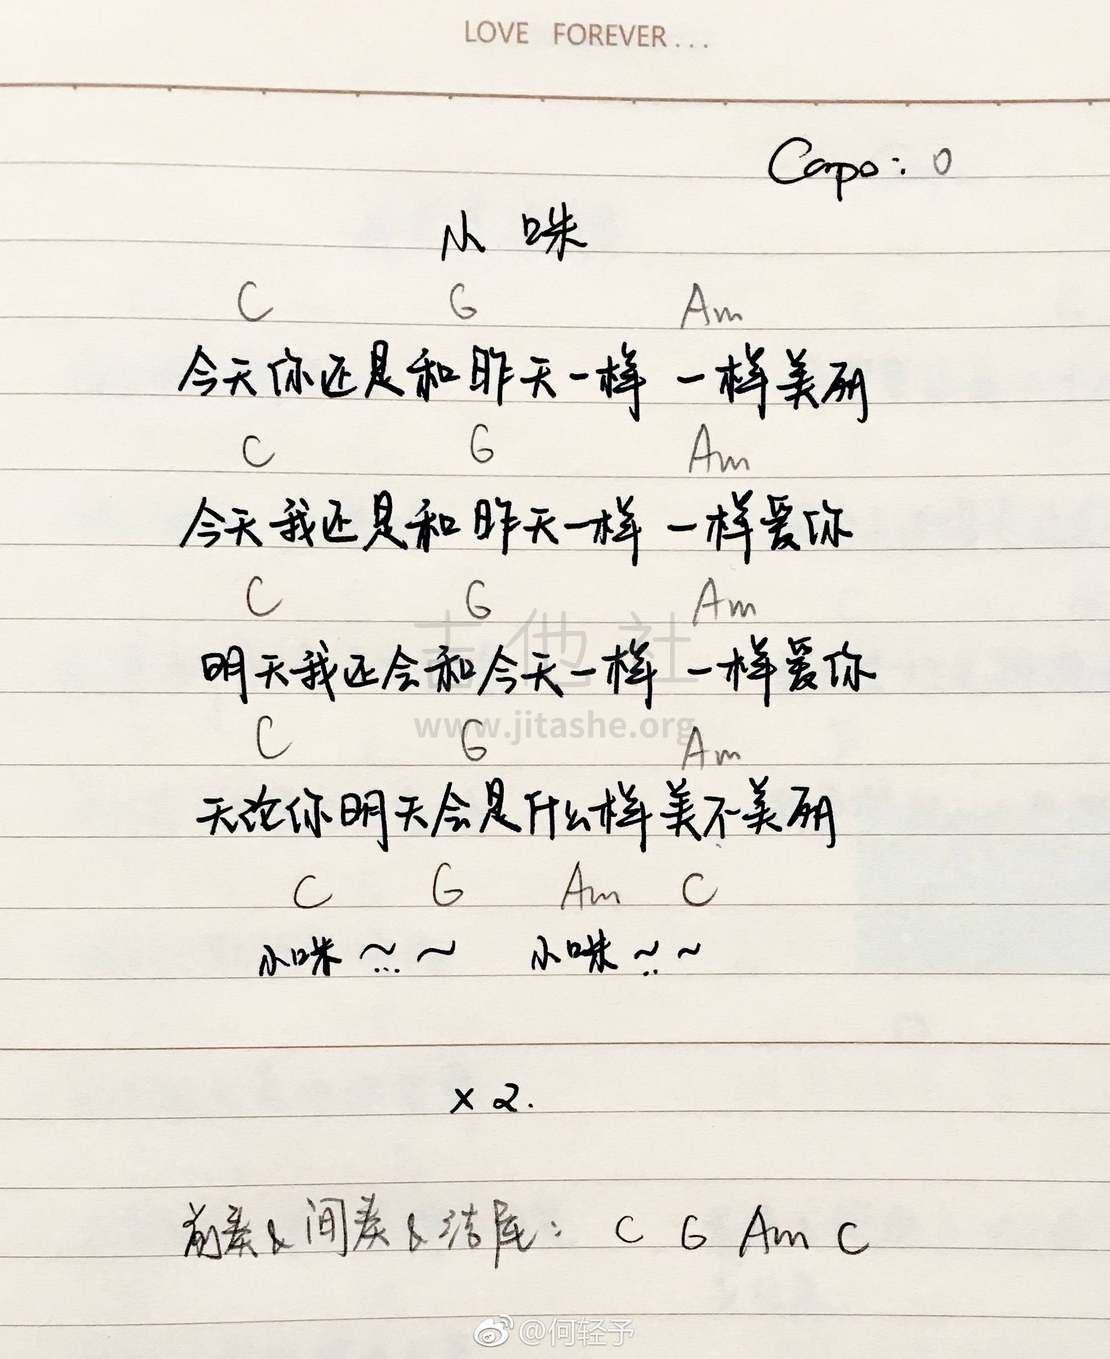 LOVE FOREVER...
Capo: 0
小咪
C G Am
今天你还是和昨天一样 一样美丽
C G Am
今天我还是和昨天一样 一样爱你
C G Am
明天我还会和今天一样 一样爱你
C G Am
无论你明天会是什么样 美不美丽
C G Am C
小咪～…～ 小咪～..～
x 2.
前奏 & 间奏 & 结尾: C G Am C
吉他社
www.jitashe.org
@何轻予